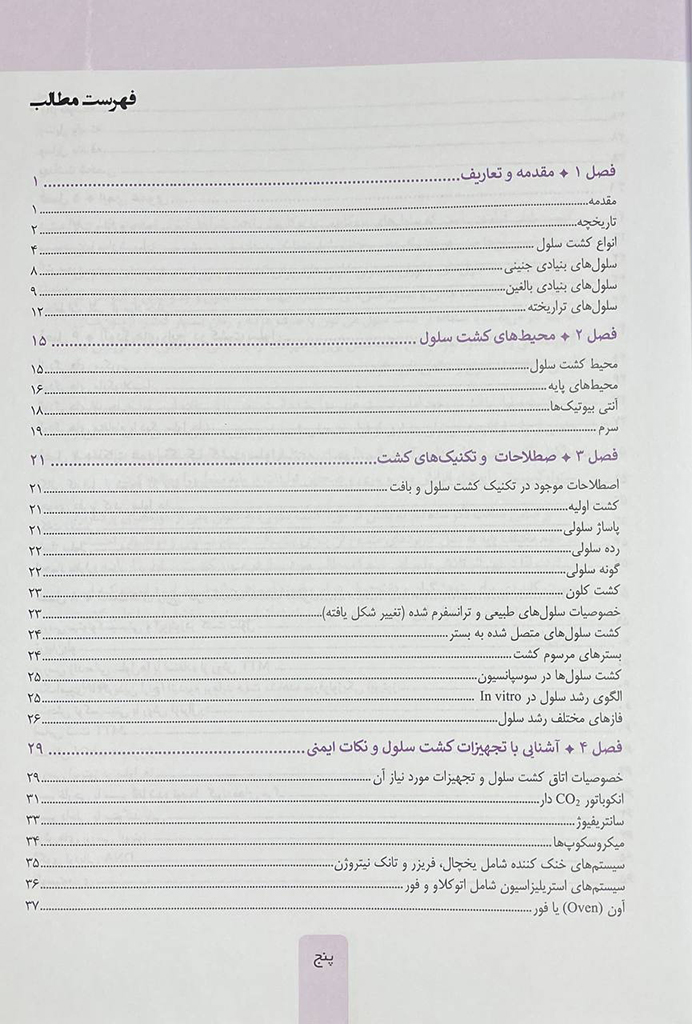 فهرست مطالب
فصل ۱ ✦ مقدمه و تعاریف ........ ۱
مقدمه ........ ۱
تاریخچه ........ ۲
انواع کشت سلول ........ ۴
سلول‌های بنیادی جنینی ........ ۸
سلول‌های بنیادی بالغین ........ ۹
سلول‌های تراریخته ........ ۱۲
فصل ۲ ✦ محیط‌های کشت سلول ........ ۱۵
محیط کشت سلول ........ ۱۵
محیط‌های پایه ........ ۱۶
آنتی بیوتیک‌ها ........ ۱۸
سرم ........ ۱۹
فصل ۳ ✦ صطلاحات و تکنیک‌های کشت ........ ۲۱
اصطلاحات موجود در تکنیک کشت سلول و بافت ........ ۲۱
کشت اولیه ........ ۲۱
پاساژ سلولی ........ ۲۱
رده سلولی ........ ۲۲
گونه سلولی ........ ۲۲
کشت کلون ........ ۲۳
خصوصیات سلول‌های طبیعی و ترانسفرم شده (تغییر شکل یافته) ........ ۲۳
کشت سلول‌های متصل شده به بستر ........ ۲۴
بسترهای مرسوم کشت ........ ۲۴
کشت سلول‌ها در سوسپانسیون ........ ۲۵
الگوی رشد سلول در In vitro ........ ۲۵
فازهای مختلف رشد سلول ........ ۲۶
فصل ۴ ✦ آشنایی با تجهیزات کشت سلول و نکات ایمنی ........ ۲۹
خصوصیات اتاق کشت سلول و تجهیزات مورد نیاز آن ........ ۲۹
انکوباتور CO₂ دار ........ ۳۱
سانتریفیوژ ........ ۳۳
میکروسکوپ‌ها ........ ۳۴
سیستم‌های خنک کننده شامل یخچال، فریزر و تانک نیتروژن ........ ۳۵
سیستم‌های استریلیزاسیون شامل اتوکلاو و فور ........ ۳۶
آون (Oven) یا فور ........ ۳۷
پنج